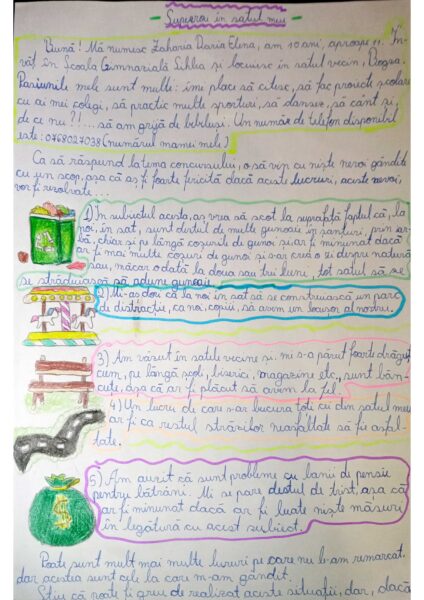 Supererou în satul meu
Bună! Mă numesc Zaharia Daria Elena, am 10 ani, aproape 11. În-
văț în Școala Gimnazială Sihlea și locuiesc în satul vecin, Bogza.
Pasiunile mele sunt multe: îmi place să citesc, să fac proiecte școlare
cu ai mei colegi, să practic multe sporturi, să dansez, să cânt și
de ce nu?!... să am grijă de bebeluși. Un număr de telefon disponibil
este: 0768027038 (numărul mamei mele).
Ca să răspund la tema concursului, o să vin cu niște nevoi gândite
cu un scop, așa că aș fi foarte fericită dacă aceste lucruri, aceste nevoi,
vor fi rezolvate...
1) În subiectul acesta, aș vrea să scot la suprafață faptul că, la
noi, în sat, sunt destul de multe gunoaie în șanțuri, prin iar-
bă, chiar și pe lângă coșurile de gunoi și ar fi minunat dacă
ar fi mai multe coșuri de gunoi și s-ar crea o zi despre natură
sau, măcar odată la două sau trei luni, tot satul să se
străduiască să adune gunoaie.
2) Mi-aș dori ca la noi în sat să se construiască un parc
de distracție, ca noi, copiii, să avem un locușor al nostru.
3) Am văzut în satele vecine și mi s-a părut foarte drăguț
cum, pe lângă școli, biserici, magazine etc., sunt băn-
cuțe, așa că ar fi plăcut să avem la fel.
4) Un lucru de care s-ar bucura toți cei din satul meu
ar fi ca restul străzilor neasfaltate să fie asfal-
tate.
5) Am auzit că sunt probleme cu banii de pensie
pentru bătrâni. Mi se pare destul de trist, așa că
ar fi minunat dacă ar fi luate niște măsuri
în legătură cu acest subiect.
Poate sunt mult mai multe lucruri pe care nu le-am remarcat,
dar acestea sunt cele la care m-am gândit.
Știu că poate fi greu de realizat aceste situații, dar, dacă